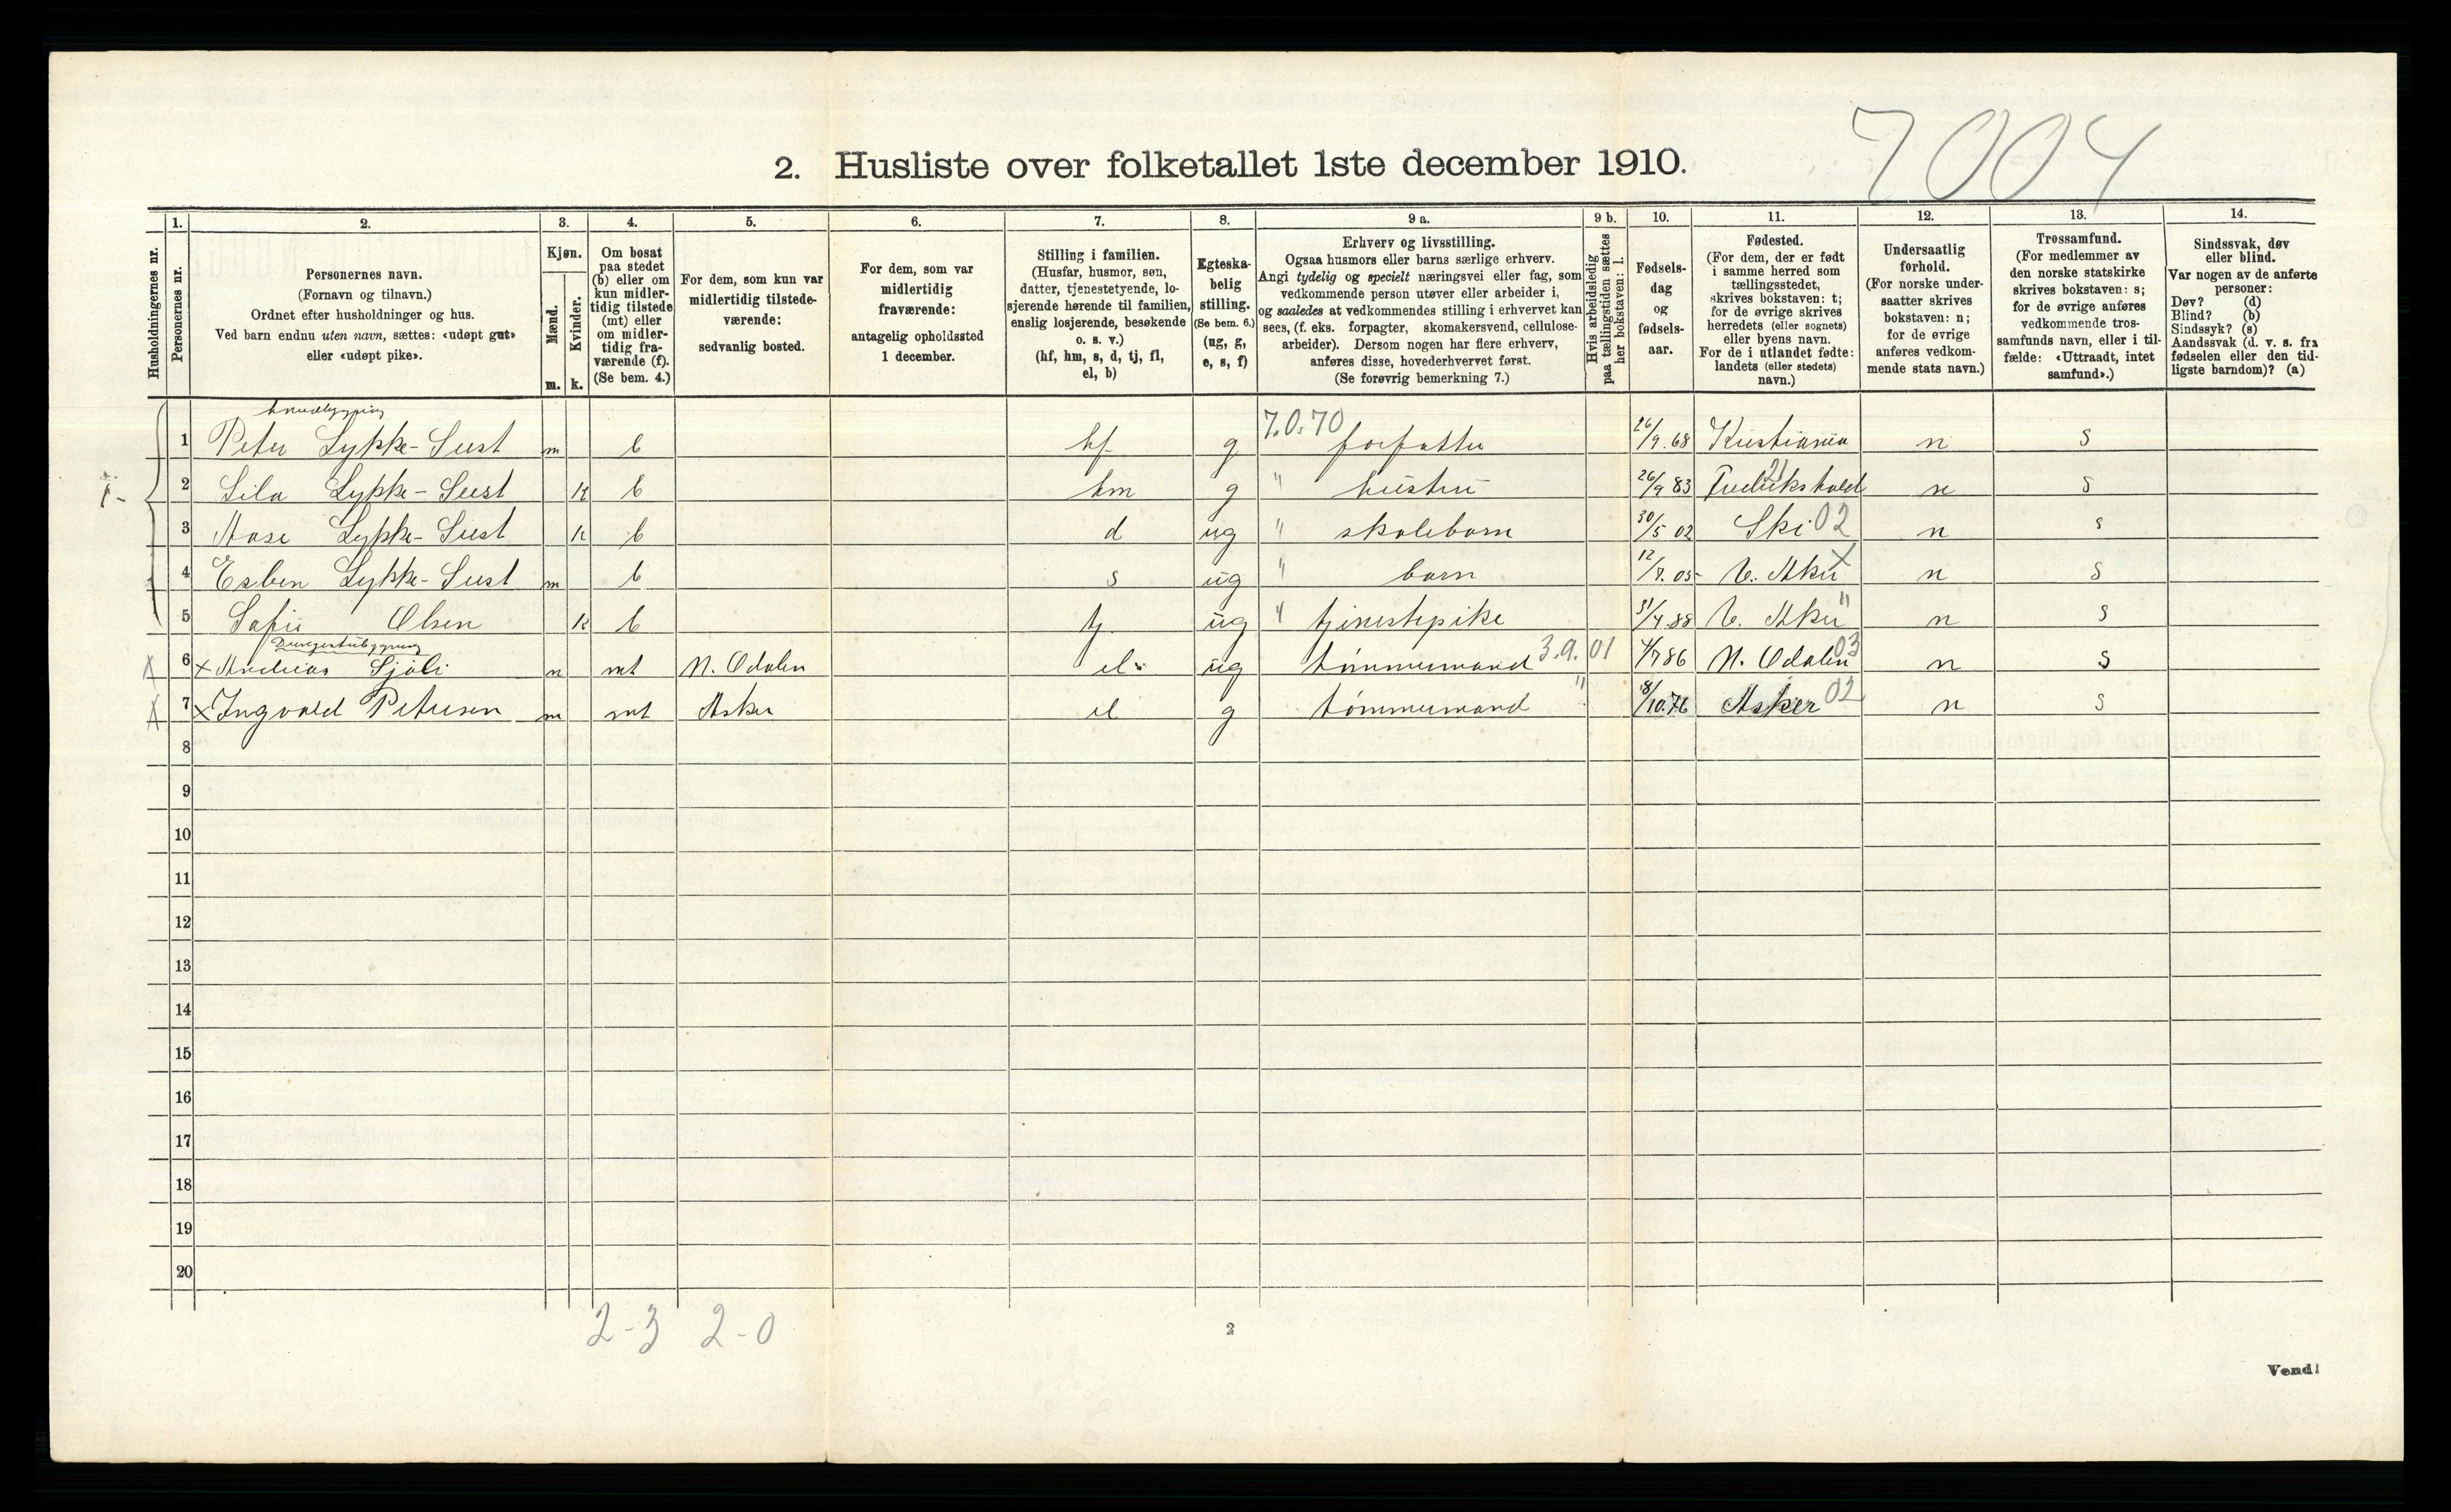 7004
2. Husliste over folketallet 1ste december 1910.
Husholdningernes nr.
1.
Personernes nr.
2.
Personernes navn.
(Fornavn og tilnavn.)
Ordnet efter husholdninger og hus.
Ved barn endnu uten navn, sættes: «udøpt gut»
eller «udøpt pike».
3.
Kjøn.
Mænd.
Kvinder.
m. k.
4.
Om bosat
paa stedet
(b) eller om
kun midler-
tidig tilstede
(mt) eller
om midler-
tidig fra-
værende (f).
(Se bem. 4.)
5.
For dem, som kun var
midlertidig tilstede-
værende:
sedvanlig bosted.
6.
For dem, som var
midlertidig
fraværende:
antagelig opholdssted
1 december.
7.
Stilling i familien.
(Husfar, husmor, søn,
datter, tjenestetyende, lo-
sjerende hørende til familien,
enslig losjerende, besøkende
o. s. v.)
(hf, hm, s, d, tj, fl,
el, b)
8.
Egteska-
belig
stilling.
(Se bem. 6.)
(ug, g,
e, s, f)
9 a.
Erhverv og livsstilling.
Ogsaa husmors eller barns særlige erhverv.
Angi tydelig og specielt næringsvei eller fag, som
vedkommende person utøver eller arbeider i,
og saaledes at vedkommendes stilling i erhvervet kan
sees, (f. eks. forpagter, skomakersvend, cellulose-
arbeider). Dersom nogen har flere erhverv,
anføres disse, hovederhvervet først.
(Se forøvrig bemerkning 7.)
9 b.
Hvis arbeidsledig
paa tællingstiden sættes
her bokstaven: l.
10.
Fødsels-
dag
og
fødsels-
aar.
11.
Fødested.
(For dem, der er født
i samme herred som
tællingsstedet,
skrives bokstaven: t;
for de øvrige skrives
herredets (eller sognets)
eller byens navn.
For de i utlandet fødte:
landets (eller stedets)
navn.)
12.
Undersaatlig
forhold.
(For norske under-
saatter skrives
bokstaven: n;
for de øvrige
anføres vedkom-
mende stats navn.)
13.
Trossamfund.
(For medlemmer av
den norske statskirke
skrives bokstaven: s;
for de øvrige anføres
vedkommende tros-
samfunds navn, eller i til-
fælde: «Uttraadt, intet
samfund».)
14.
Sindssvak, døv
eller blind.
Var nogen av de anførte
personer:
Døv? (d)
Blind? (b)
Sindssyk? (s)
Aandssvak (d. v. s. fra
fødselen eller den tid-
ligste barndom)? (a)
1 Peter Lykke-Seest m b hf g 7.0.70 forfatter 26/9.68 Kristiania n s
2 Lykke-Seest k b hm g " hustru 26/9 83 Fredrikshald 21 n s
3 Aase Lykke-Seest k b d ug " skolebarn 30/5 02 Ski 02 n s
4 Esben Lykke-Seest m b s ug " barn 12/7.05 V. Aker X n s
5 Sofie Olsen k b tj ug " tjenestepike 31/4.88 V. Aker " n s
6 x Andreas Sjøli m mt N. Odalen el ug tømmermand 3.9.01 4/7 86 N. Odalen 03 n s
7 x Ingvald Petersen m mt Asker el g tømmermand " 8/10.76 Asker 02 n s
8
9
10
11
12
13
14
15
16
17
18
19
20
2-3 2-0
2
Vend!